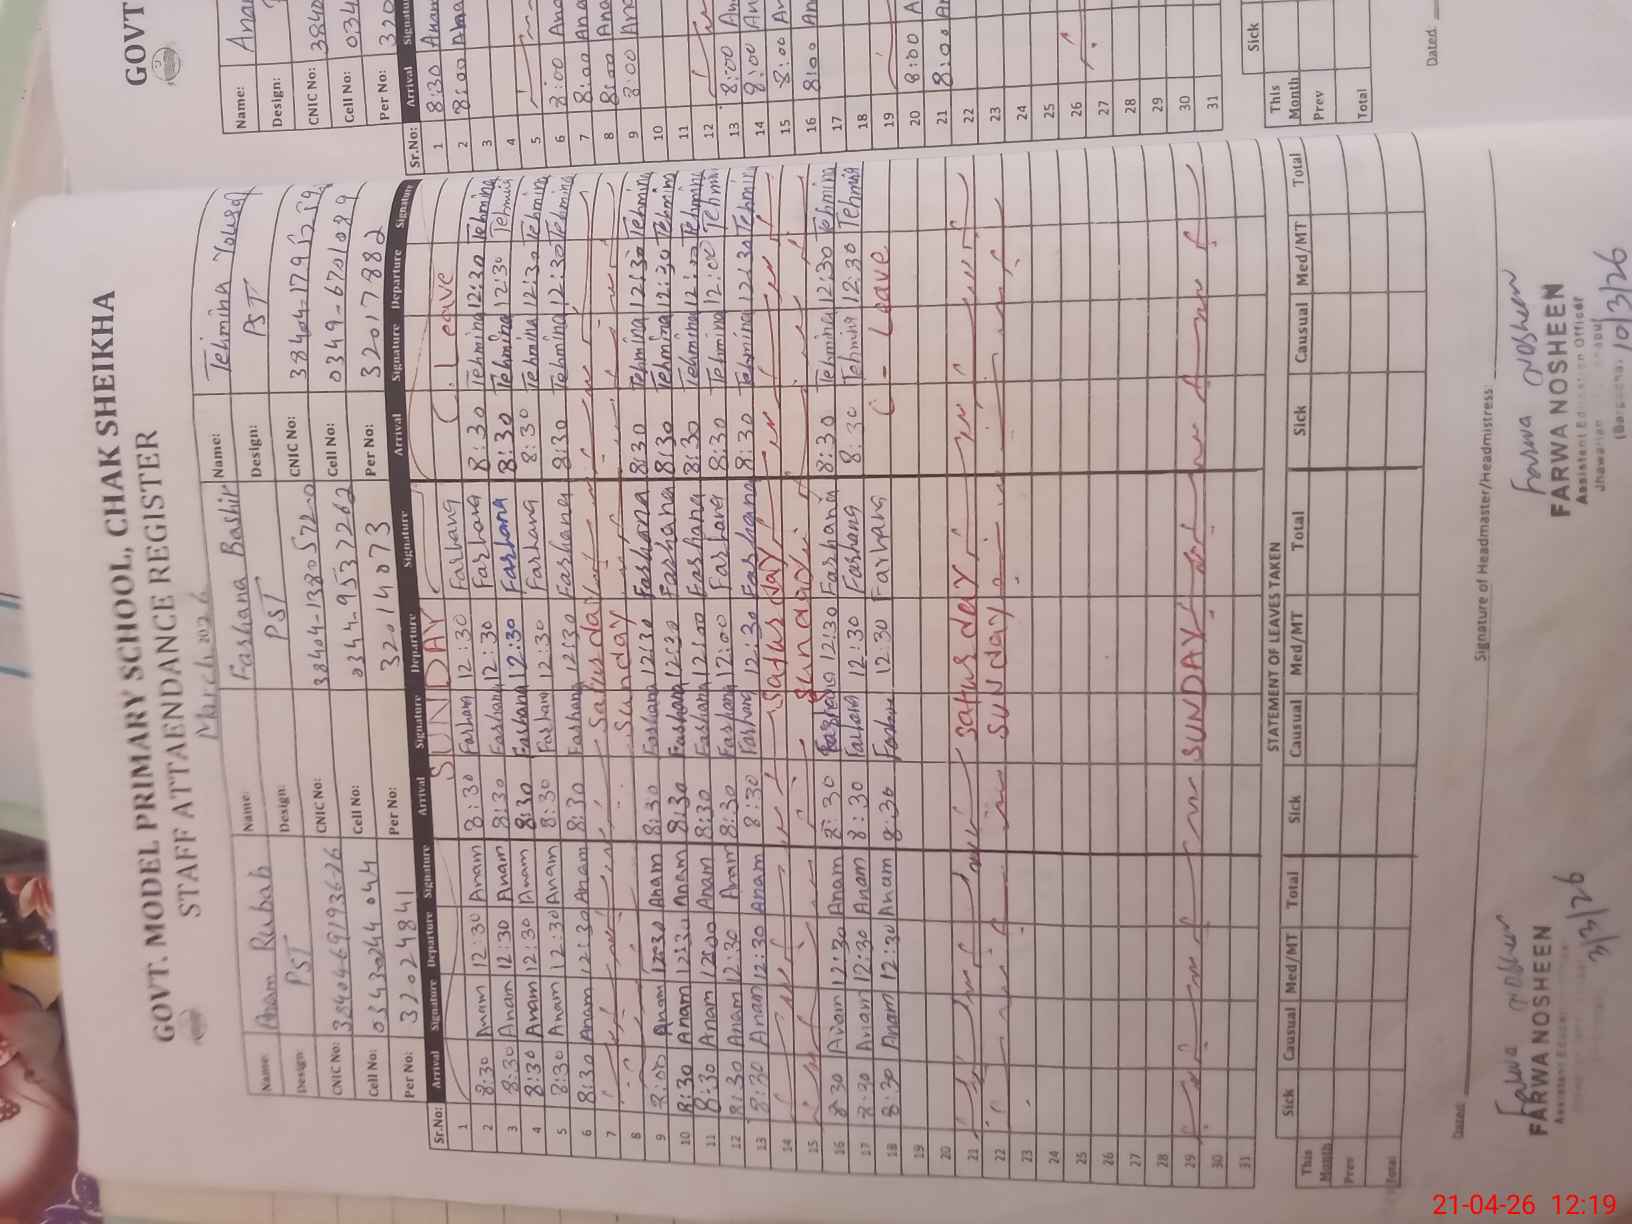 GOVT. MODEL PRIMARY SCHOOL, CHAK SHEIKHA
STAFF ATTAENDANCE REGISTER
March 2026
Name: Anam Rubab Name: Farhana Bashir Name: Tehmina Yousaf
Design: PST Design: PST Design: PST
CNIC No: 3840469193676 CNIC No: 38404-1380572-0 CNIC No:
Cell No: Cell No: 0344-9537262 Cell No: 0349-6701089
Per No: 3202484 Per No: 32014073 Per No: 32017882
Sr.No: Arrival Signature Departure Signature Arrival Signature Departure Signature Arrival Signature Departure Signature
1 SUNDAY C. Leave
2 8:30 Anam 12:30 Anam 8:30 Farhana 12:30 Farhana 8:30 Tehmina 12:30 Tehmina
3 8:30 Anam 12:30 Anam 8:30 Farhana 12:30 Farhana 8:30 Tehmina 12:30 Tehmina
4 8:30 Anam 12:30 Anam 8:30 Farhana 12:30 Farhana 8:30 Tehmina 12:30 Tehmina
5 8:30 Anam 12:30 Anam 8:30 Farhana 12:30 Farhana 8:30 Tehmina 12:30 Tehmina
6 8:30 Anam 12:30 Anam 8:30 Farhana 12:30 Farhana
7 Saturday
8 Sunday
9 8:00 Anam 12:30 Anam 8:30 Farhana 12:30 Farhana 8:30 Tehmina 12:30 Tehmina
10 8:30 Anam 12:30 Anam 8:30 Farhana 12:30 Farhana 8:30 Tehmina 12:30 Tehmina
11 8:30 Anam 12:00 Anam 8:30 Farhana 12:00 Farhana 8:30 Tehmina Tehmina
12 8:30 Anam 12:30 Anam 8:30 Farhana 12:00 Farhana 8:30 Tehmina 12:00 Tehmina
13 8:30 Anam 12:30 Anam 8:30 Farhana 12:30 Farhana 8:30 Tehmina 12:30 Tehmina
14 Saturday
15 Sunday
16 8:30 Anam 12:30 Anam 8:30 Farhana 12:30 Farhana 8:30 Tehmina 12:30 Tehmina
17 8:30 Anam 12:30 Anam 8:30 Farhana 12:30 Farhana 8:30 Tehmina 12:30 Tehmina
18 8:30 Anam 12:30 Anam 8:30 Farhana 12:30 Farhana C - Leave
19
20
21 Saturday
22 SUNDAY
23
24
25
26
27
28
29 SUNDAY
30
31
STATEMENT OF LEAVES TAKEN
Sick Causual Med/MT Total Sick Causual Med/MT Total Sick Causual Med/MT Total
This Month
Prev
Total
Dated: Signature of Headmaster/Headmistress:
Farwa Nosheen Farwa Nosheen
FARWA NOSHEEN FARWA NOSHEEN
Assistant Education Officer
3/3/26 10/3/26
GOVT
Name: Anam
Design:
CNIC No: 3840
Cell No: 034
Per No: 320
Sr.No: Arrival Signature
1 8:30 Anam
2 8:00 Anam
3
4
5
6 8:00
7 8:00
8 8:00
9 8:00
10
11
12
13 8:00
14 8:00
15 8:00
16 8:00
17
18
19
20 8:00
21 8:00
22
23
24
25
26
27
28
29
30
31
Sick
This Month
Prev
Total
Dated:
21-04-26 12:19